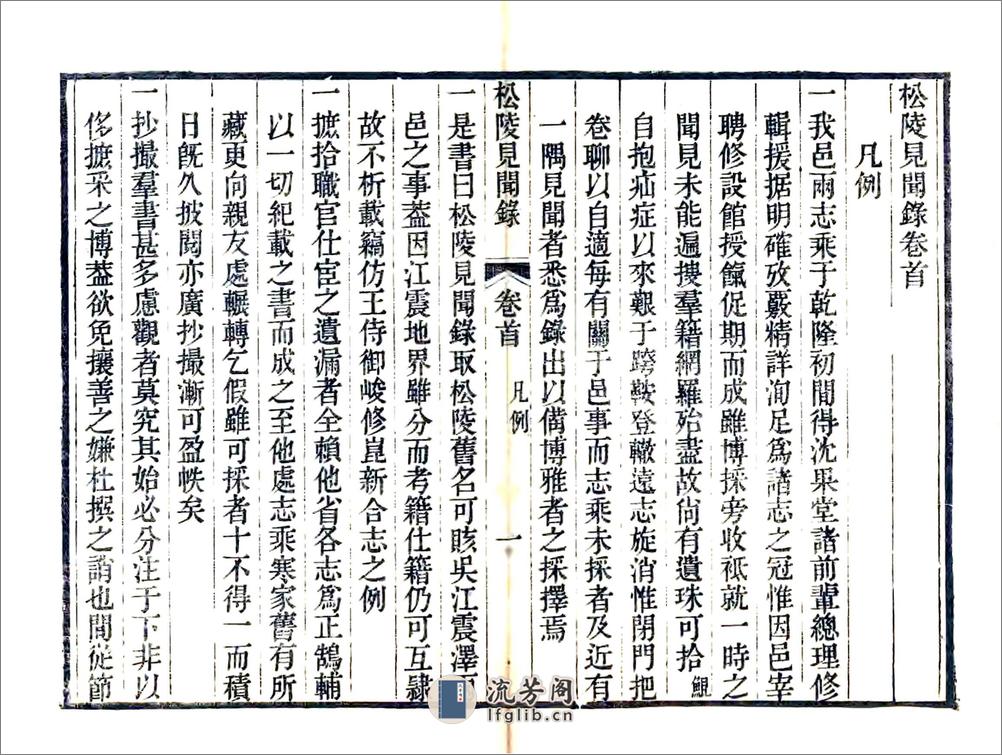 松陵見聞錄卷首
凡例
一我邑兩志乘于乾隆初間得沈果堂諸前輩總理修
輯援据明確攷覈精詳洵足爲諸志之冠惟因邑宰
聘修設館授餼促期而成雖博採旁收祗就一時之
聞見未能遍搜羣籍網羅殆盡故尙有遺珠可拾鯤
自抱疝症以來艱于跨鞍登轍遠志旋消惟閉門把
卷聊以自適每有關于邑事而志乘未採者及近有
一隅見聞者悉爲錄出以備博雅者之採擇焉
松陵見聞錄 卷首 凡例 一
一是書曰松陵見聞錄取松陵舊名可賅吳江震澤
邑之事葢因江震地界雖分而考籍仕籍仍可互隷
故不析載竊仿王侍御峻修崑新合志之例
一摭拾職官仕宦之遺漏者全賴他省各志爲正鵠輔
以一切紀載之書而成之至他處志乘寒家舊有所
藏更向親友處輾轉乞假雖可採者十不得一而積
日旣久披閱亦廣抄撮漸可盈帙矣
一抄撮羣書甚多慮觀者莫究其始必分注于下非以
侈摭采之博葢欲免攘善之嫌杜撰之誚也間從節
流芳阁
lfglib.cn